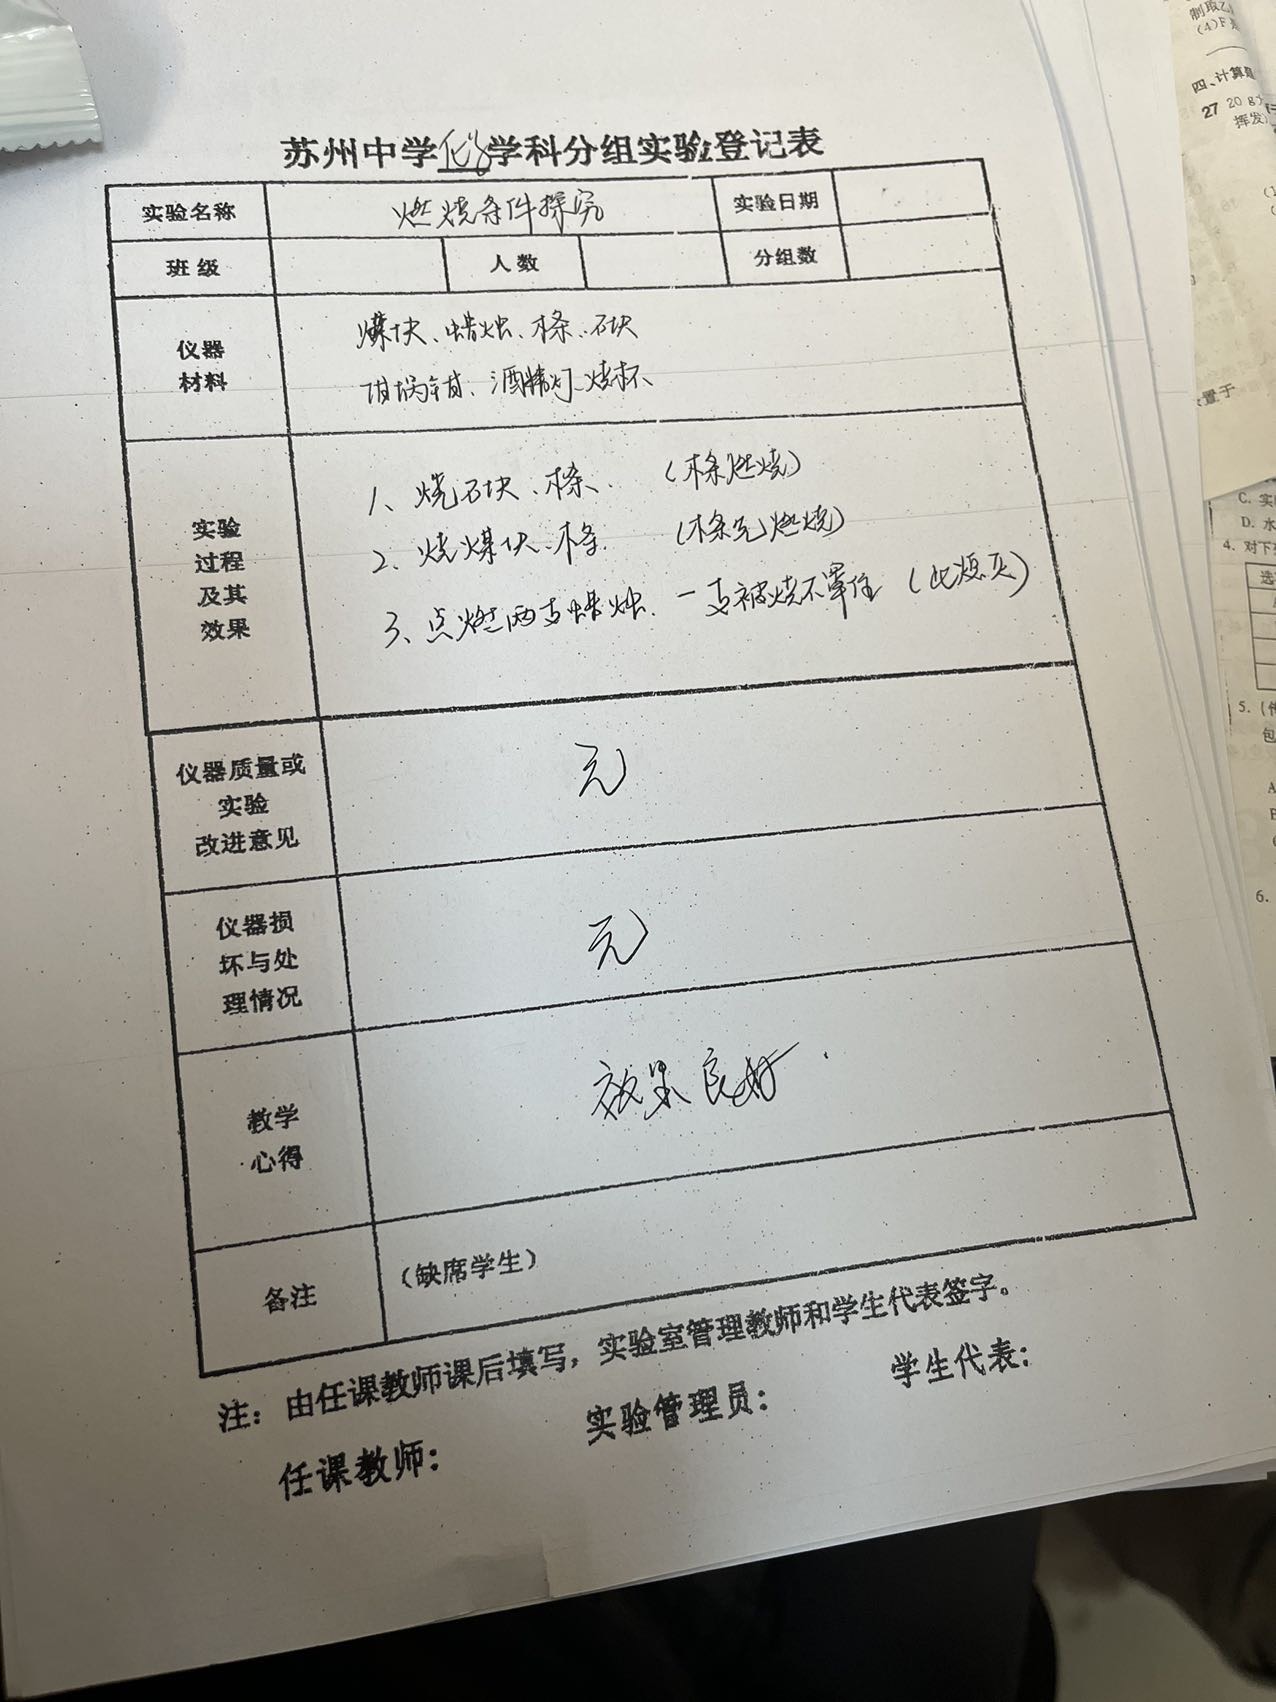 苏州中学化学学科分组实验登记表
实验名称 燃烧条件探究 实验日期
班级 人数 分组数
仪器材料
煤块、蜡烛、木条、石块
坩埚钳、酒精灯、烧杯
实验过程及其效果
1、烧石块、木条、(木条燃烧)
2、烧煤块、木条 (木条先燃烧)
3、点燃两支蜡烛、一支被烧杯罩住 (此熄灭)
仪器质量或实验改进意见
无
仪器损坏与处理情况
无
教学心得
效果良好.
备注 (缺席学生)
注:由任课教师课后填写,实验室管理教师和学生代表签字。
任课教师: 实验管理员: 学生代表:
(4)F
四、计算题
27 20 g
挥发
置于
C. 实
D. 水
4. 对下
选
5. (
包
A
6.